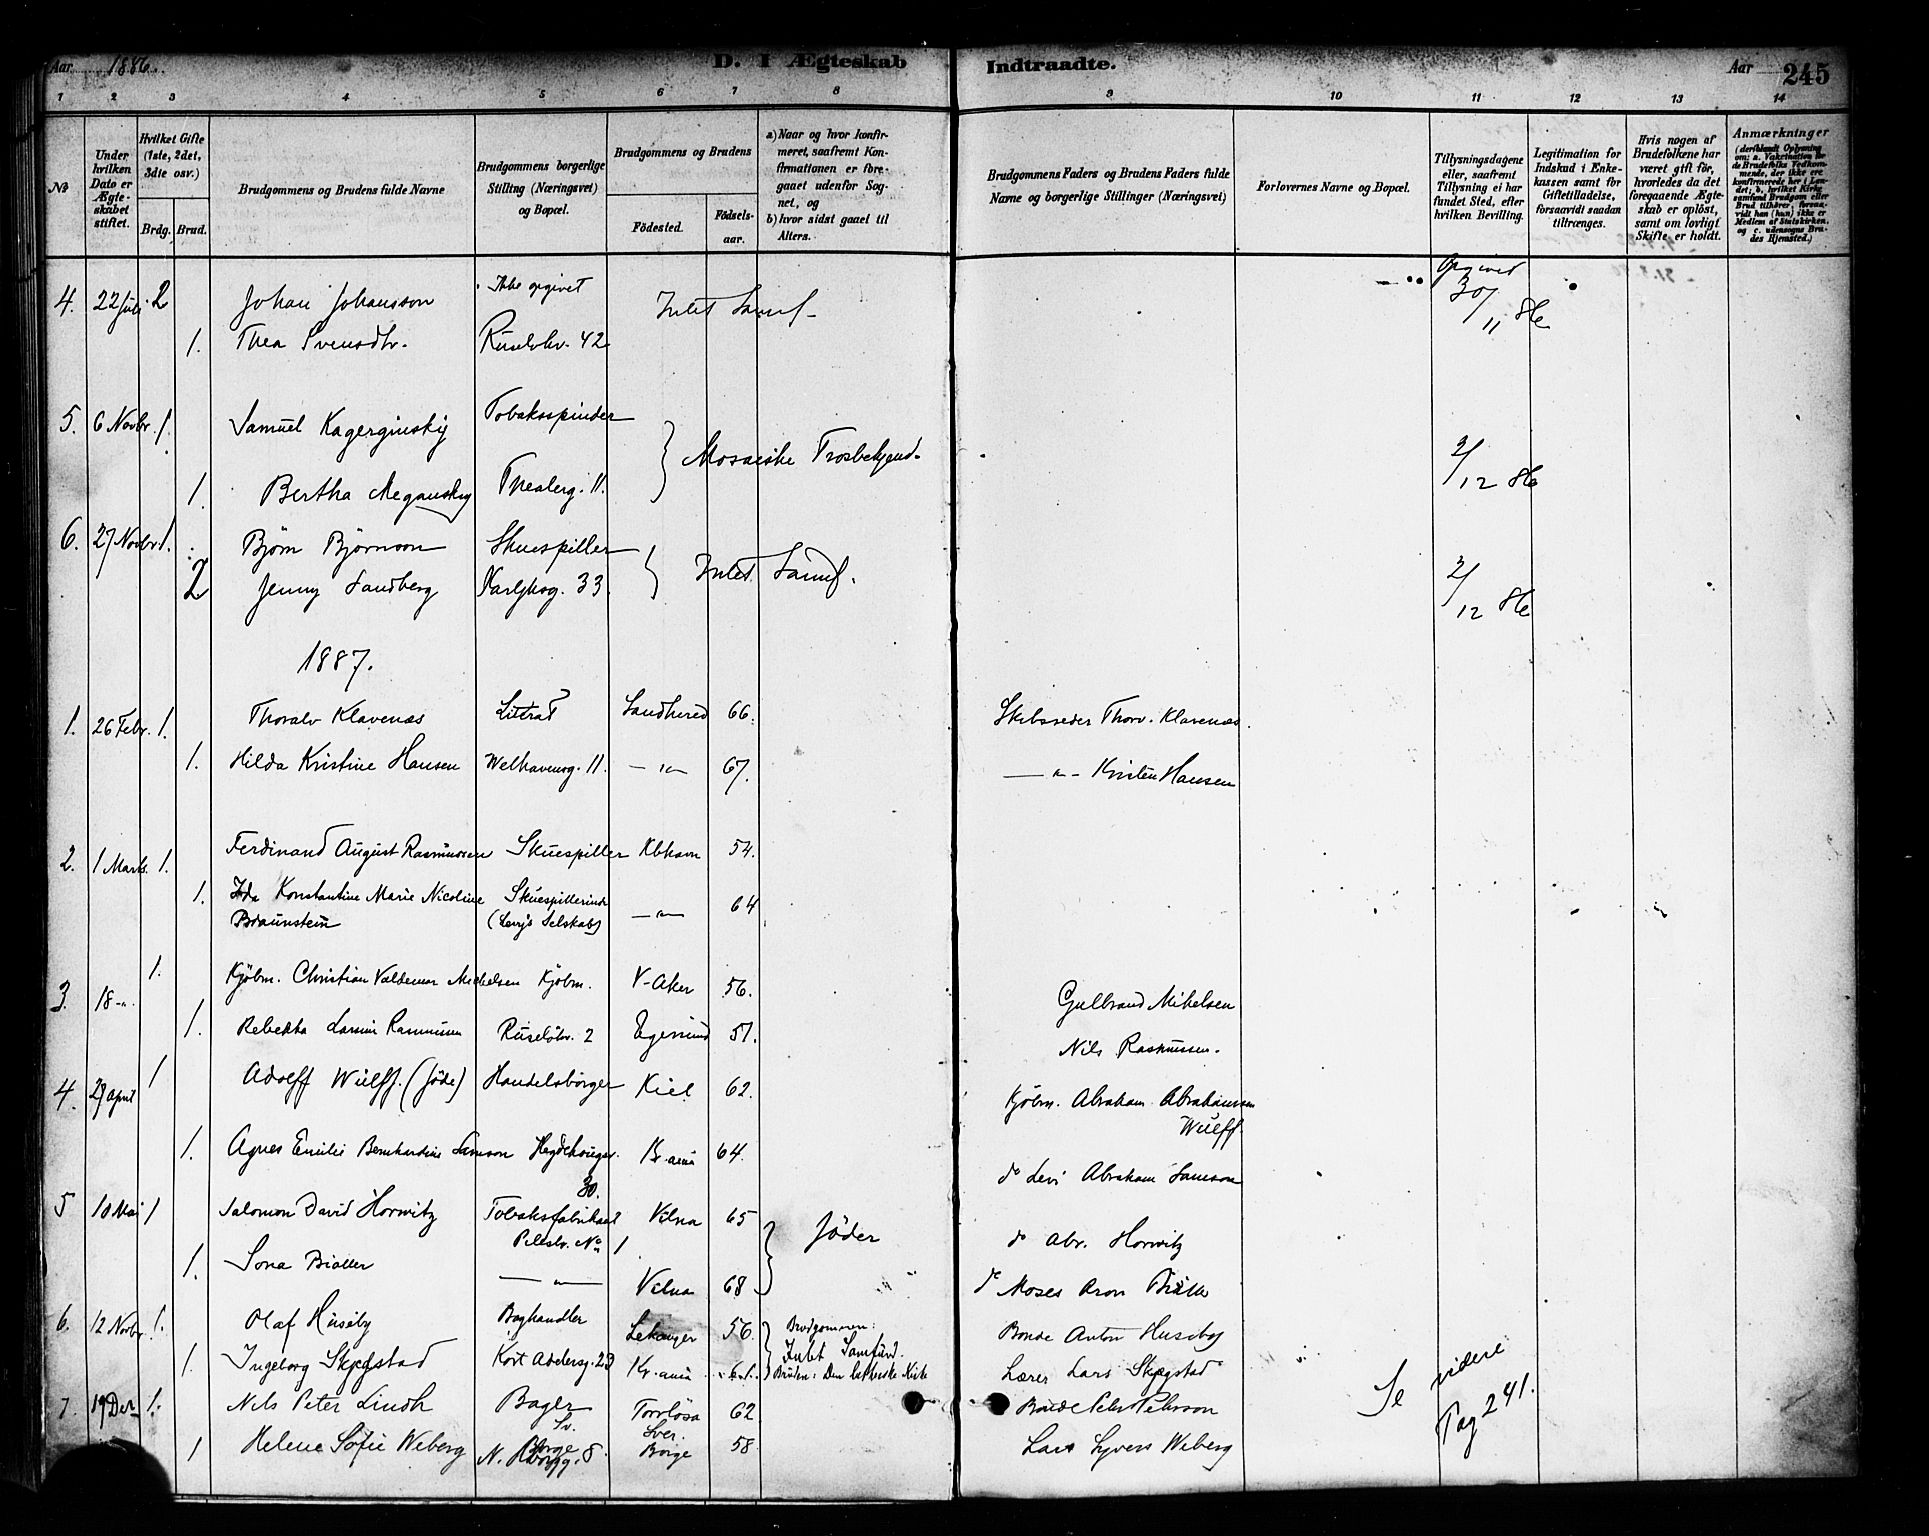 Aar 1886. D. I Ægteskab Indtraadte. Aar 245
1 2 3 4 5 6 7 8 9 10 11 12 13 14
No
Under hvilken Dato er Ægteskabet stiftet.
Hvilket Gifte (1ste, 2det, 3dte osv.)
Brdg. Brud.
Brudgommens og Brudens fulde Navne
Brudgommens borgerlige Stilling (Næringsvei) og Bopæl.
Brudgommens og Brudens
Födested. Födsels-aar.
a) Naar og hvor konfirmeret, saafremt Konfirmationen er foregaaet udenfor Sognet, og
b) hvor sidst gaaet til Alters.
Brudgommens Faders og Brudens Faders fulde Navne og borgerlige Stillinger (Næringsvei)
Forlovernes Navne og Bopæl.
Tillysningsdagene eller, saafremt Tillysning ei har fundet Sted, efter hvilken Bevilling.
Legitimation for Indskud i Enkekassen samt for Giftetilladelse, forsaavidt saadan tiltrænges.
Hvis nogen af Brudefolkene har været gift för, hvorledes da det foregaaende Ægteskab er oplöst, samt om lovligt Skifte er holdt.
Anmærkninger
4. 22 Juli 2 Johan Johansson Ikke opgivet Intet Samf. Opgived 30/11 86
1. Thea Svensdtr. Ruselökv. 42
5. 6 Novbr. 1. Samuel Kagerginskij Tobaksspinder Mosaiske Trosbekjend. 2/12 86
1. Bertha Meganskij Theaterg. 11.
6. 27 Novbr. 1. Bjørn Bjørnson Skuespiller Intet Samf. 2/12 86
2 Jenny Sandberg 33.
1887.
1. 26 Febr. 1. Thoralv Klavenæs Litrat Sandhered 66. Skibsreder Thorv. Klavenæs.
1. Hilda Kristine Hansen Welhavensg. 11. — "— 67. — "— Kristen Hansen
2. 1 Marts. 1. Ferdinand August Rasmussen Skuespiller Kbhavn 54.
1. Ida Konstantine Marie Nicoline Skuespillerinde — "— 64
Braunstein (Levys Selskab)
3. 18 -"- 1. Kjöbm. Christian Valdemar Michelsen Kjöbm. V-Aker 56. Gulbrand Mikelsen
1. Rebekka Rasmussen Ruselökv. 2 Egersund 57. Nils Rasmussen.
4. 29 April 1 Adolff Wulff. (Jöde) Handelsborger Kiel 62. Kjöbm. Abraham Abrahamsen
Wulff.
1. Agnes Emilie Bernhardine Samson Hegdehougsv. 30. Kr.ania 64. do Levi Abraham Samson
5 10 Mai 1 Salomon David Horwitz Tobaksfabrikant Vilna 65 Jöder do Abr. Horwitz
Pilestr. No 1
1. Sona Bialler — "— Vilna 68 do Moses Aron
6. 12 Novbr. 1. Olaf Huseby Boghandler Lekanger 56. Brudgommen: Bonde Anton Huseby
1. Ingeborg Skjegstad Kort Adelersg. 23 Kr.ania Intet Samfund. Lærer Lars Skjegstad
Bruden: Den lutherske Kirke
7. 19 Dec 1. Nils Peter Lindh Bager Torrlösa 62 Bonde Peter Pehrson Se videre
Sv. Sver. Pag 241.
1 Helene Sofie Weberg N. 8. Borge 58 Lars Weberg